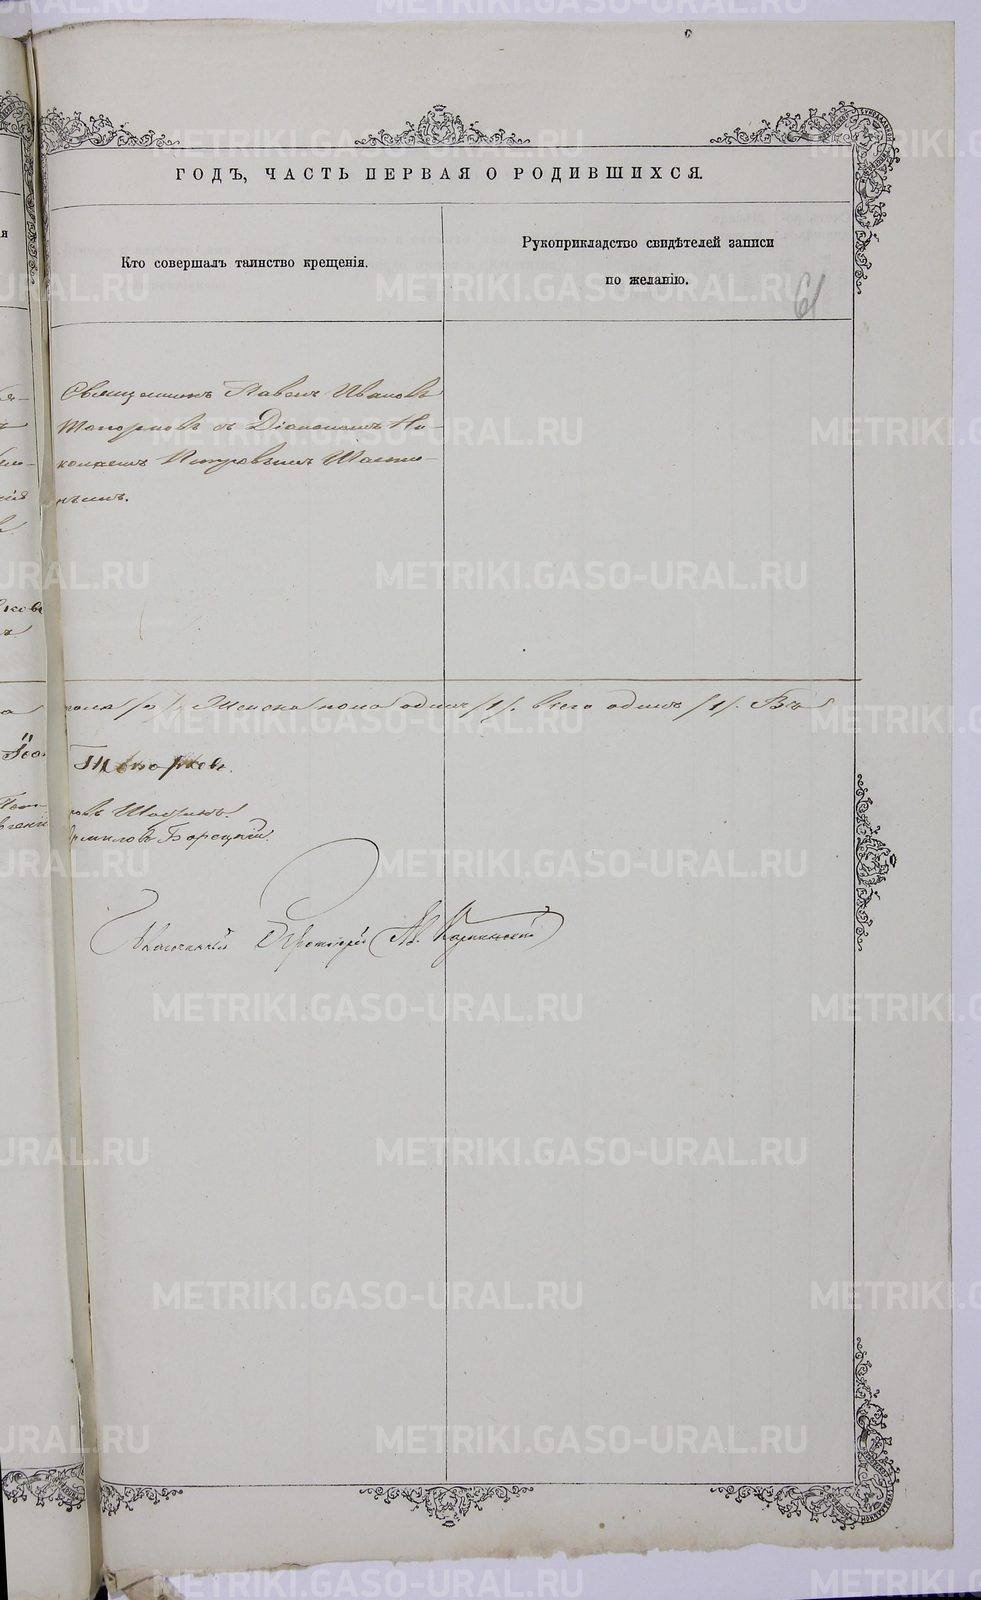 ГОДЪ, ЧАСТЬ ПЕРВАЯ О РОДИВШИХСЯ.
Кто совершалъ таинство крещенія.
Рукоприкладство свидѣтелей записи
по желанію.
61
Священникъ Павелъ Ивановъ
Топорковъ съ Діакономъ Ни-
колаемъ Петровымъ Шасти-
нымъ.
пола /0/. Женска пола одинъ /1/. Всего одинъ /1/.
Топорковъ.
ровъ Шастинъ.
Борецкій.
Благочинный Протоіерей
METRIKI.GASO-URAL.RU